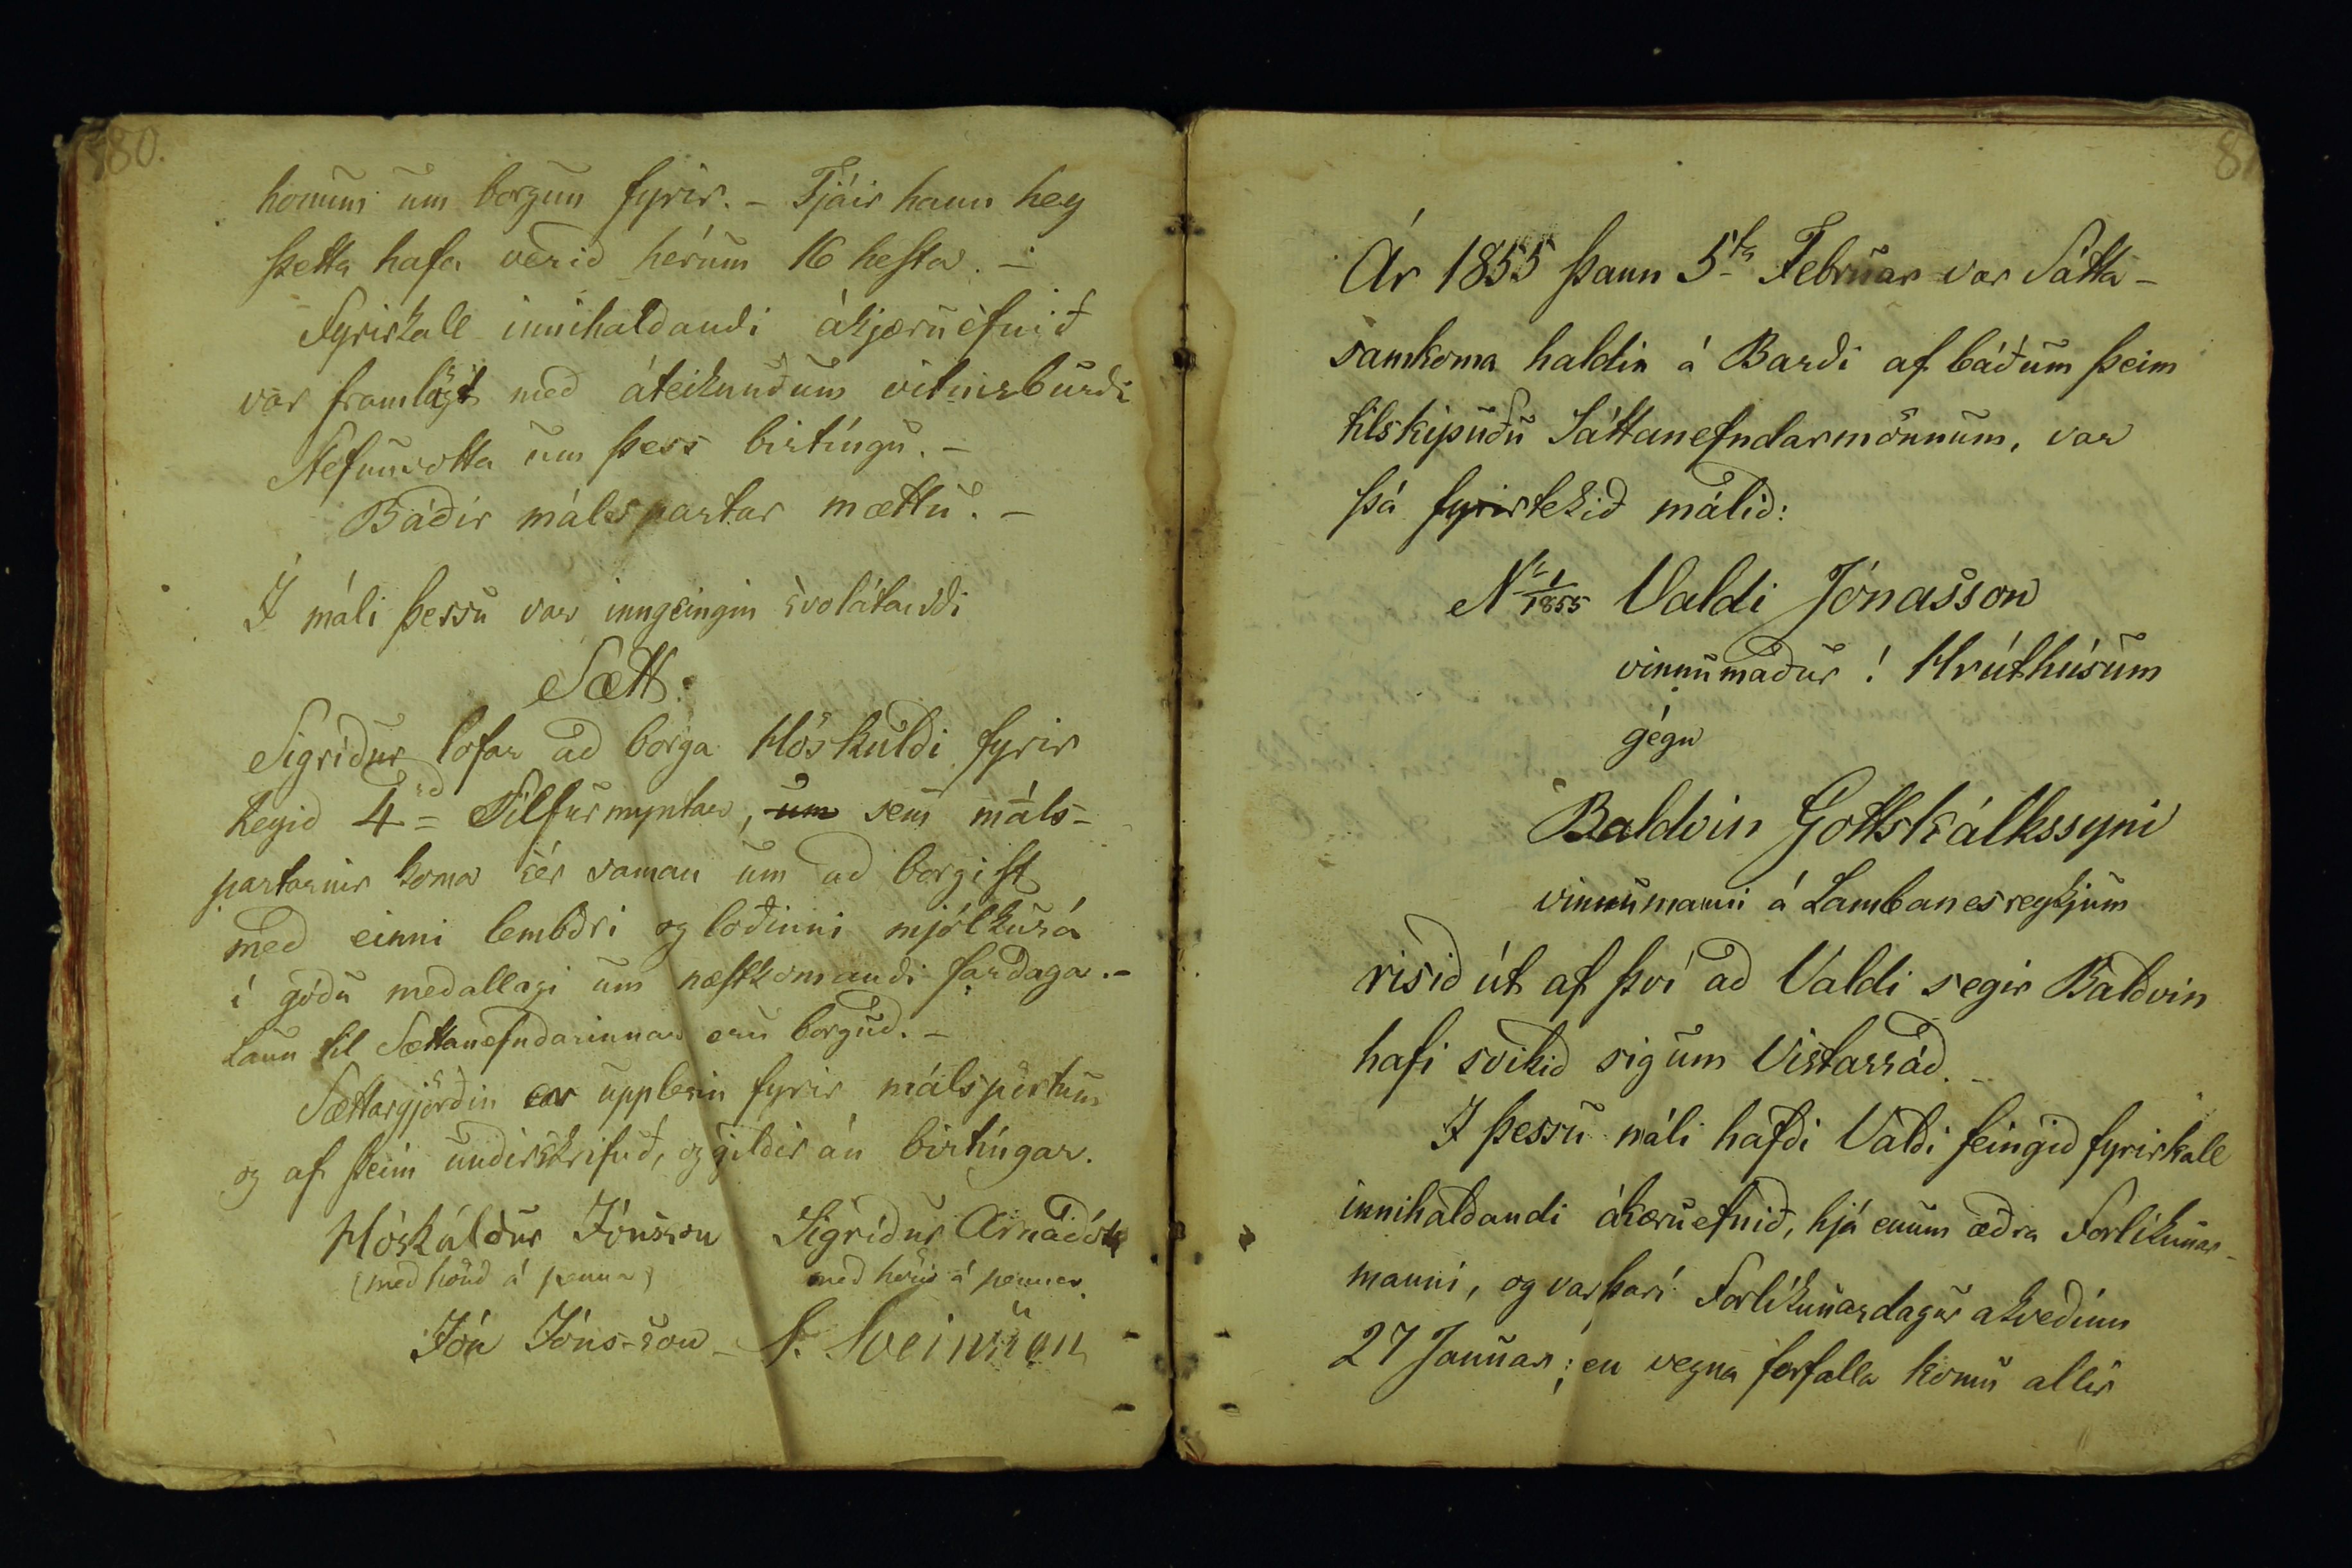 80.
honum um borgun fyrir. - Tjáir hann hey
þetta hafa verið hérum 16 hesta. -
Fyrirkall innihaldandi ákjæruefnið
var framlagt með áteiknuðum vitnisburði
Stefnuvotta um þess birtíngu. -
Báðir málspartar mættu. -
Í máli þessu var inngeingin svolátandi
Sætt:
Sigríður lofar að borga Höskuldi fyrir
heyið 4rd Silfurmyntar, um sem máls-
partarnir koma sér saman um að borgist
með einni lembdri og loðinni mjólkurá
í góðu meðallagi um næstkomandi fardaga. -
Laun til Sættanefndarinnar eru borguð. -
Sættargjörðin var upplesin fyrir málspörtum
og af þeim undirskrifuð, og gildir án birtíngar.
Höskuldur Jónsson Sigríður Arnadótt
(með hönd á penna) með hönd á penna.
Jón Jóns-son S. Sveinsson
81
Ár 1855 þann 5ta Februar var Sátta-
samkoma haldin á Barði af báðum þeim
tilskipuðu Sáttanefndarmönnum, var
þá fyrirtekið málið:
Nr 1/1855 Valdi Jónasson
vinnumaður í Hrúthúsum
gégn
Baldvin Gottskálkssyni
vinnumanni á Lambanesreykjum
risið út af því að Valdi segir Baldvin
hafi svikið sig um Vistarráð. -
I þessu máli hafði Valdi feingið fyrirkall
innihaldandi ákæruefnið, hjá enum æðra Forlíkunar-
manni, og var þarí Forlíkunardagur akveðinn
27 Januar; en vegna forfalla komu allir